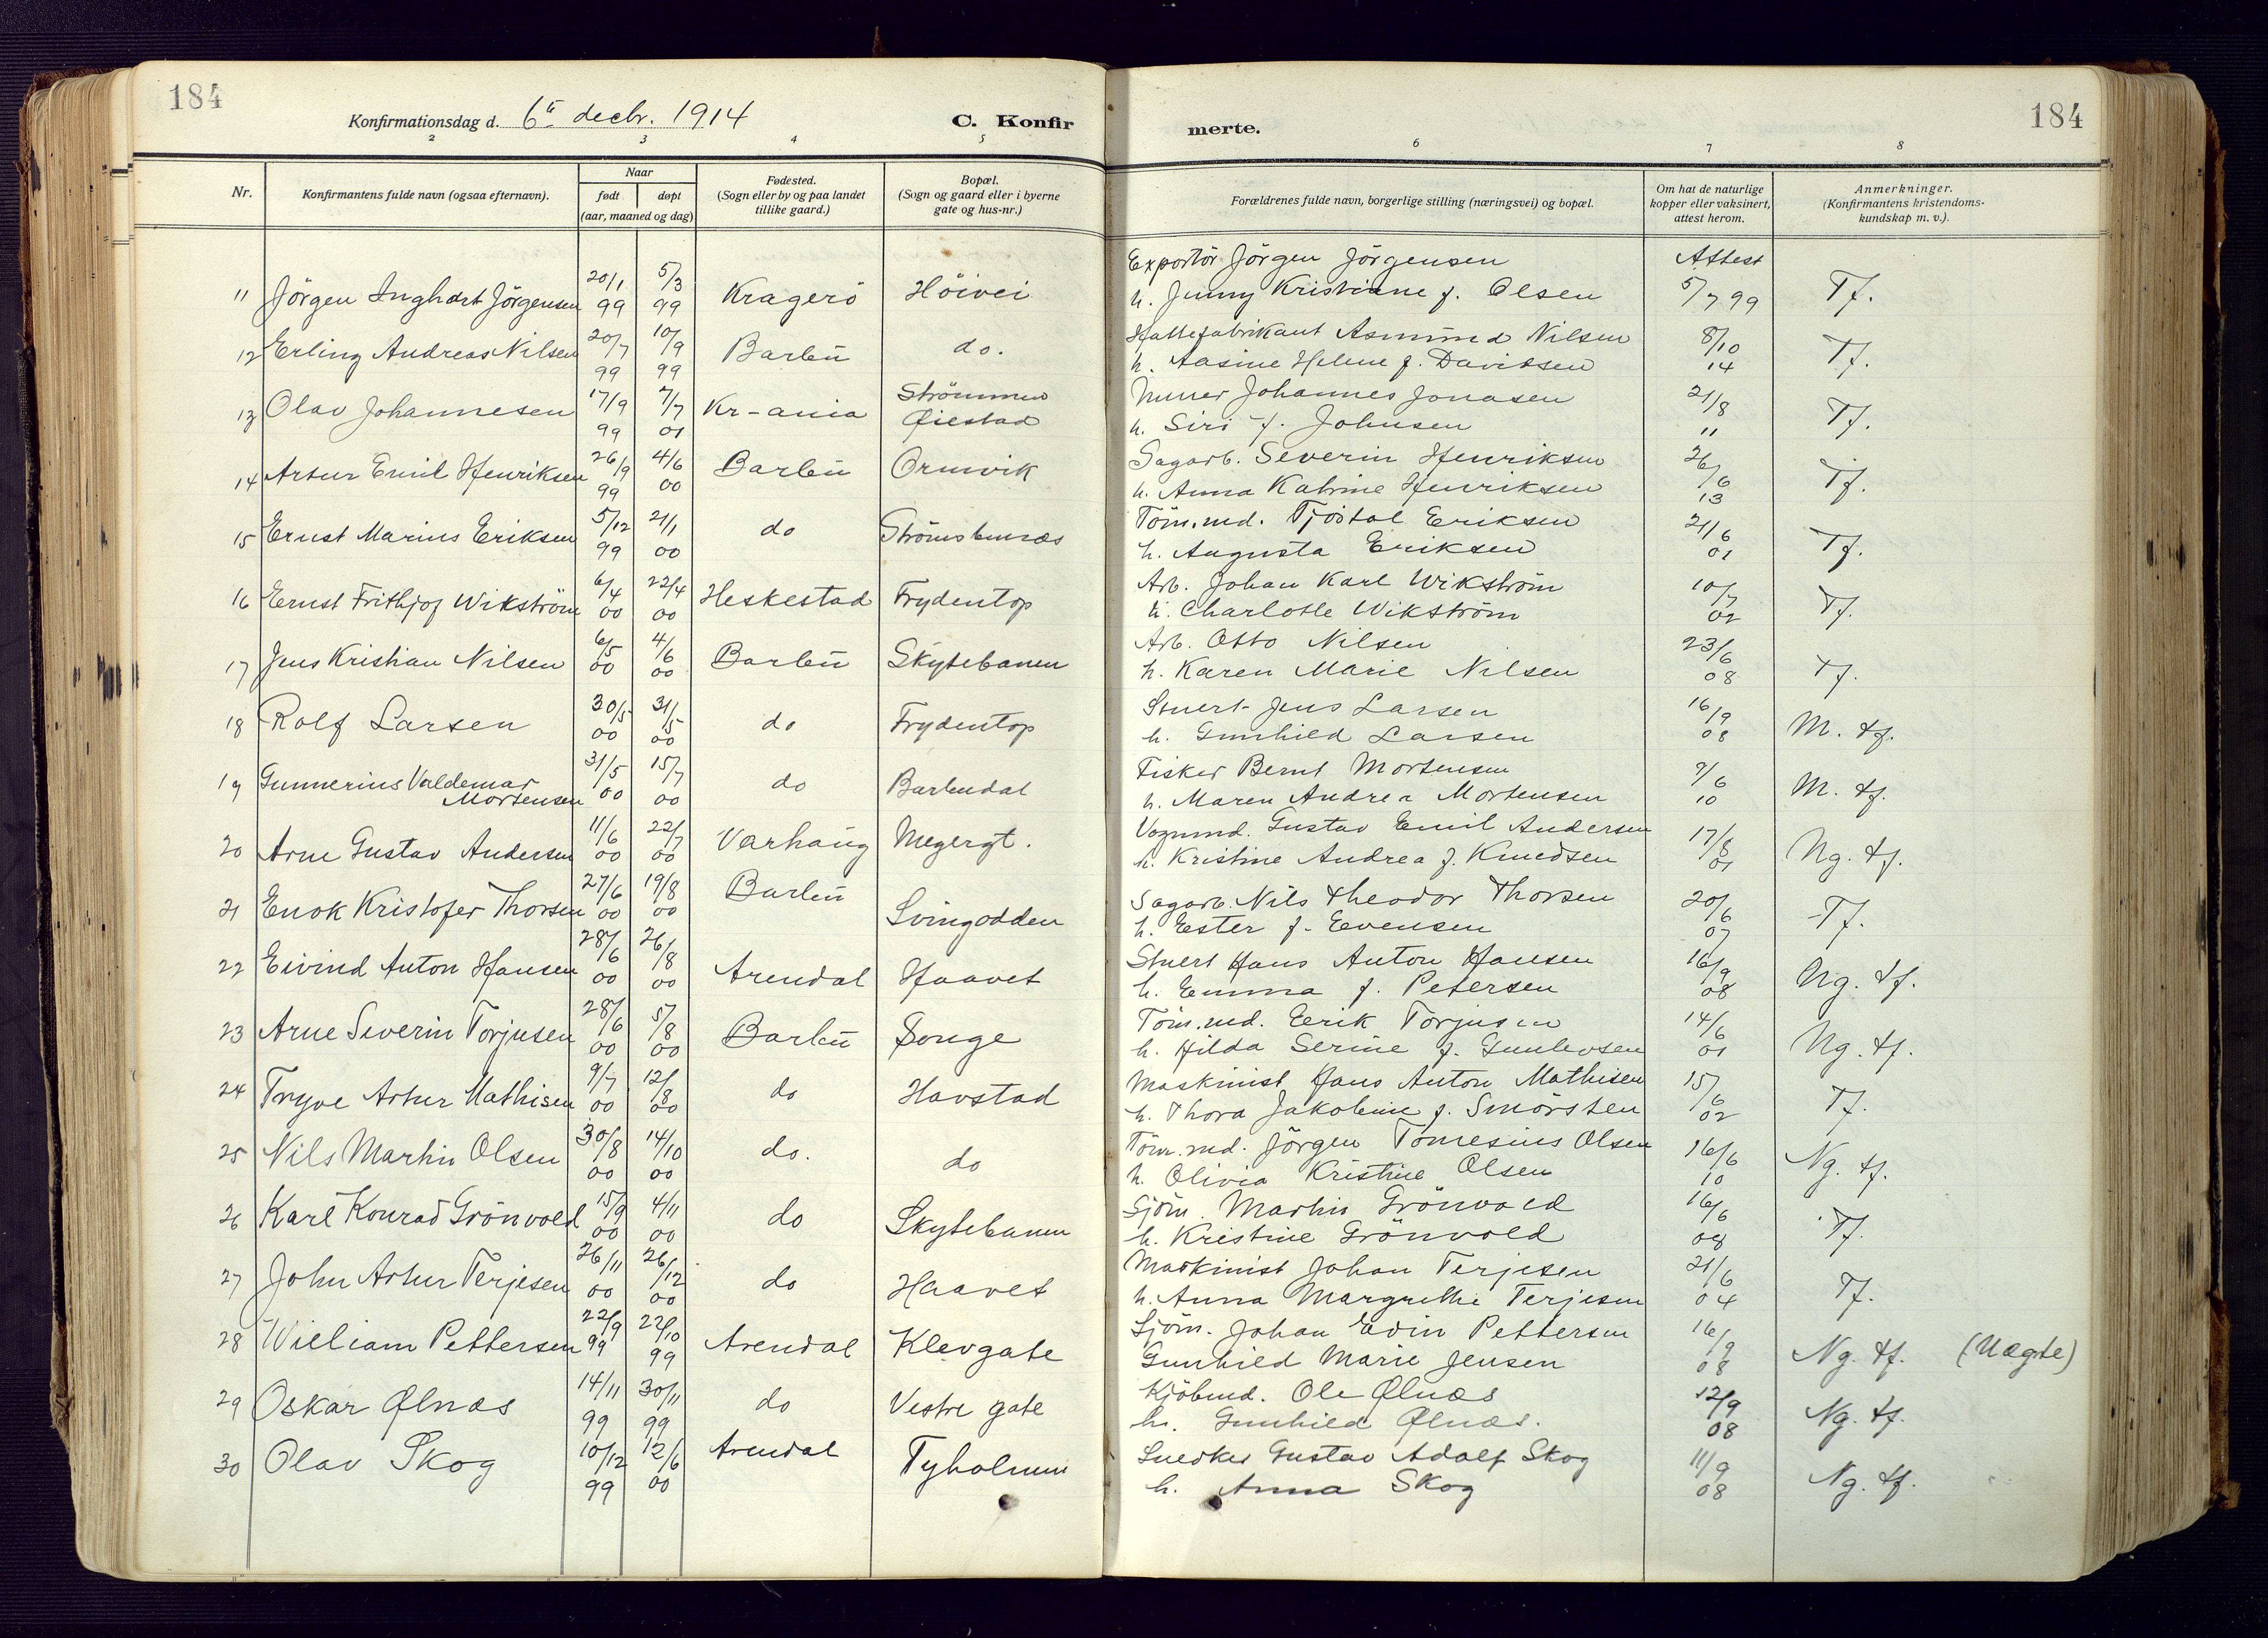 184
Konfirmationsdag d. 6te decbr. 1914
C. Konfir
merte.
184
2 3 4 5 6 7 8
Nr.
Konfirmantens fulde navn (ogsaa efternavn).
Naar
født
døpt
(aar, maaned og dag)
Fødested.
(Sogn eller by og paa landet
tillike gaard.)
Bopæl.
(Sogn og gaard eller i byerne
gate og hus-nr.)
Forældrenes fulde navn, borgerlige stilling (næringsvei) og bopæl.
Om hat de naturlige
kopper eller vaksinert,
attest herom.
Anmerkninger.
(Konfirmantens kristendoms-
kundskap m. v.).
Exportör Jörgen Jörgensen Attest
11 Jörgen Inghart Jörgensen 20/1 99 5/3 99 Kragerö Höivei h. Jenny Kristiane f. Olsen 5/7 99 Tf.
Hattefabrikant Asmund Nilsen
12 Erling Andreas Nilsen 20/7 99 10/9 99 Barbu do. h. Aasine Helene f. Davidsen 8/10 14 Tf.
Murer Johannes Jonasen
13 Olav Johannesen 17/9 99 7/7 01 Kr-ania Strömmen Øiestad h. Siri f. Johnsen 21/8 11 Tf.
Sagarb. Severin Henriksen
14 Artur Emil Henriksen 26/9 99 4/6 00 Barbu Ormvik h. Anna Katrine Henriksen 26/6 13 Tf.
Töm.md. Tjöstol Eriksen
15 Ernst Marius Eriksen 5/12 99 21/1 00 do Strömsbunæs h. Augusta Eriksen 21/6 01 Tf.
Arb. Johan Karl Wikström
16 Ernst Frithjof Wikström 6/4 00 22/4 00 Heskestad Frydentop h. Charlotte Wikström 10/7 02 Tf.
Arb. Otto Nilsen
17 Jens Kristian Nilsen 6/5 00 4/6 00 Barbu Skytebanen h. Karen Marie Nilsen 23/6 08 Tf.
Stuert Jens Larsen
18 Rolf Larsen 30/5 00 31/5 00 do Frydentop h. Gunhild Larsen 16/9 08 M. tf.
Fisker Bernt Mortensen
19 Gunnerius Valdemar Mortensen 31/5 00 15/7 00 do Barbudal h. Maren Andrea Mortensen 9/6 10 M. tf.
Vognmd. Gustav Emil Andersen
20 Arne Gustav Andersen 11/6 00 22/7 00 Varhaug Meyergt. h. Kristine Andrea f. Knudsen 17/8 01 Ng. tf.
Sagarb. Nils Theodor Thorsen
21 Enok Kristofer Thorsen 27/6 00 19/8 00 Barbu Svingodden h. Ester f. Evensen 20/6 07 Tf.
Stuert Hans Anton Hansen
22 Eivind Anton Hansen 28/6 00 26/8 00 Arendal Haavet h. Emma f. Petersen 16/9 08 Ng. tf.
Töm.md. Eerik Torjusen
23 Arne Severin Torjusen 28/6 00 5/8 00 Barbu Songe h. Hilda Serine f. Gunlevsen 14/6 01 Ng. tf.
Maskinist Hans Anton Mathisen
24 Trygve Artur Mathisen 9/7 00 12/8 00 do Havstad h. Thora Jakobine f. Smörsten 15/6 02 Tf.
Töm.md. Jörgen Tomesius Olsen
25 Nils Martin Olsen 30/8 00 14/10 00 do. do h. Olivia Kristine Olsen 16/6 10 Ng. tf.
Sjöm. Martin Grönvold
26 Karl Konrad Grönvold 15/9 00 4/11 00 do Skytebanen h. Kristine Grönvold 16/6 08 Tf.
Maskinist Johan Terjesen
27 John Artur Terjesen 26/11 00 26/12 00 do Haavet h. Anna Margrethe Terjesen 21/6 04 Tf.
Sjöm. Johan Edvin Pettersen
28 William Pettersen 22/9 99 22/10 99 Arendal Klevgate Gunhild Marie Jensen 16/9 08 Ng. tf. (Uægte)
Kjöbmd. Ole Ølnæs
29 Oskar Ølnæs 14/11 99 30/11 99 do Vestre gate h. Gunhild Ølnæs. 12/9 08 Ng. tf.
Snedker Gustav Adolf Skog
30 Olav Skog 10/12 99 12/6 00 Arendal Tyholmen h. Anna Skog 11/9 08 Ng. tf.